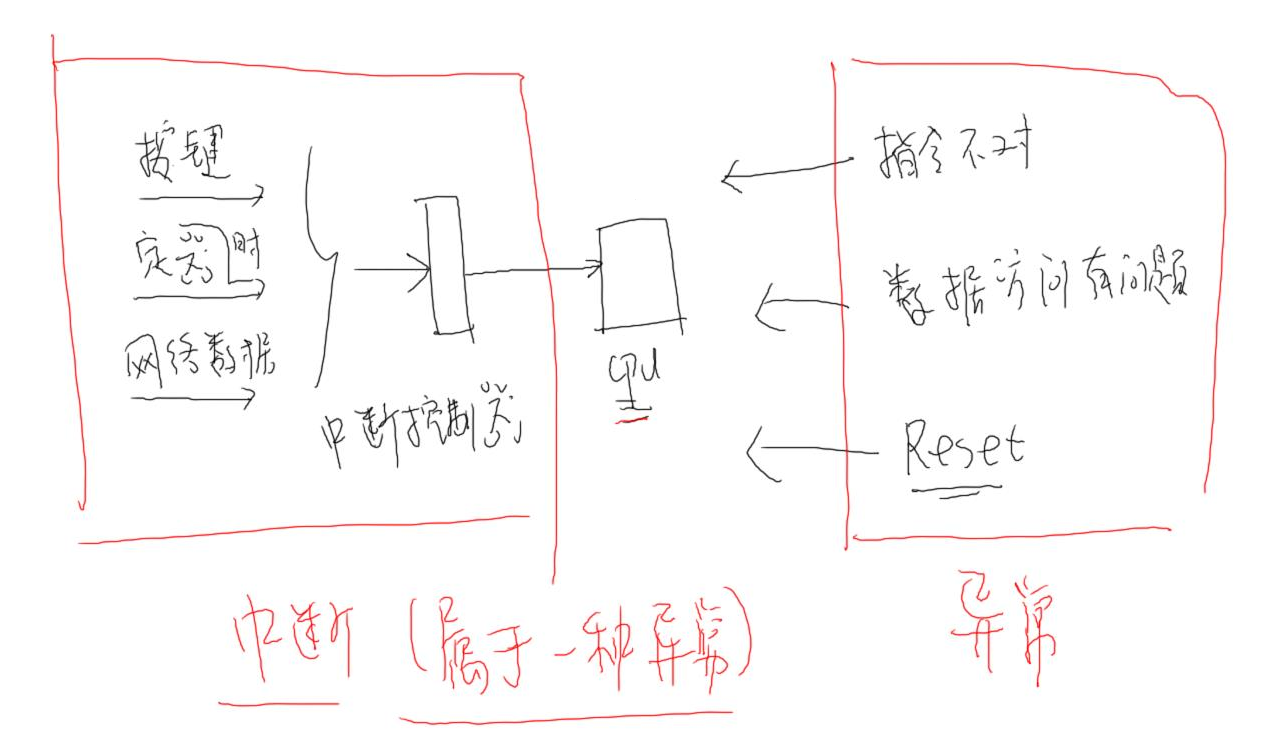 按键
定时器
网络数据
中断控制器
cpu
指令不对
数据访问有问题
Reset
中断 (属于一种异常)
异常